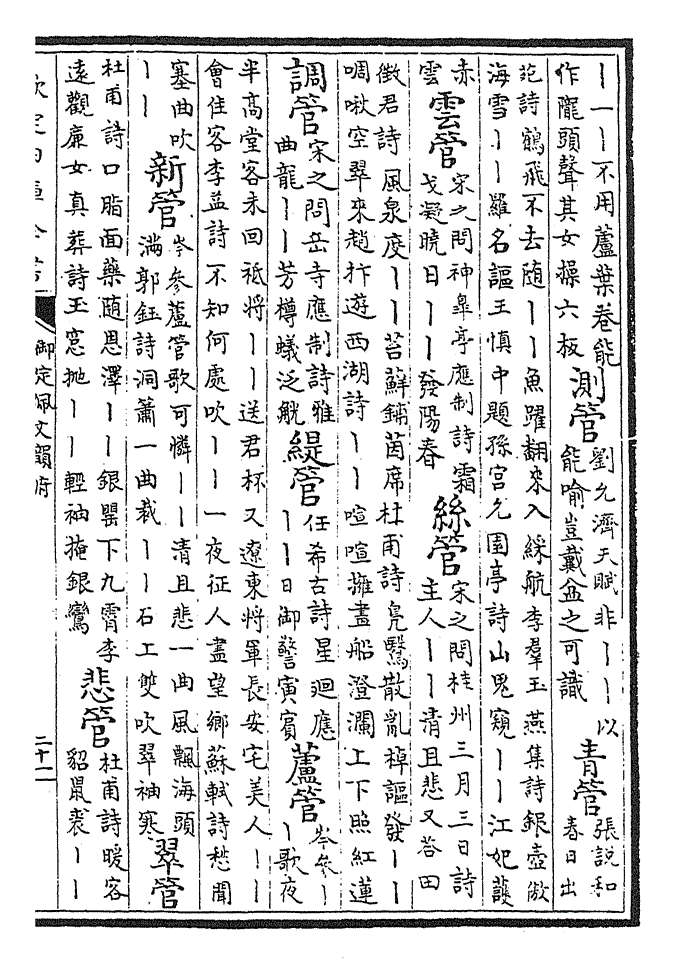 ｜一｜不用蘆葉卷能
作隴頭聲其女操六板
測管
劉允濟天賦非｜｜以
能喻豈戴盆之可識
青管
張説和
春日出
苑詩鶴飛不去随｜｜魚躍翻來入綵航李羣玉燕集詩銀壺傲
海雪｜｜羅名謳王慎中題孫宫允園亭詩山鬼窺｜｜江妃護
赤
雲
雲管
宋之問神臯亭應制詩霜
戈凝曉日｜｜發陽春
絲管
宋之問桂州三月三日詩
主人｜｜清且悲又荅田
徴君詩風泉度｜｜苔蘚鋪茵席杜甫詩鳬鷖散亂棹謳發｜｜
啁啾空翠來趙抃遊西湖詩｜｜喧喧擁畫船澄瀾上下照紅蓮
調管
宋之問岳寺應制詩雅
曲龍｜｜芳樽蟻泛觥
緹管
任希古詩星廻應
｜｜日御警寅賓
蘆管
岑參｜
｜歌夜
半高堂客未回祗將｜｜送君杯又遼東將軍長安宅美人｜｜
會佳客李益詩不知何處吹｜｜一夜征人盡望鄉蘇軾詩愁聞
塞曲吹
｜｜
新管
岑參蘆管歌可憐｜｜清且悲一曲風飄海頭
滿郭鈺詩洞簫一曲裁｜｜石工雙吹翠袖寒
翠管
杜甫詩口脂面藥随恩澤｜｜銀罌下九霄李
遠觀亷女真葬詩玉窓抛｜｜輕袖掩銀鸞
悲管
杜甫詩暖客
貂鼠裘｜｜
欽定四庫全書
御定佩文韻府
二十二